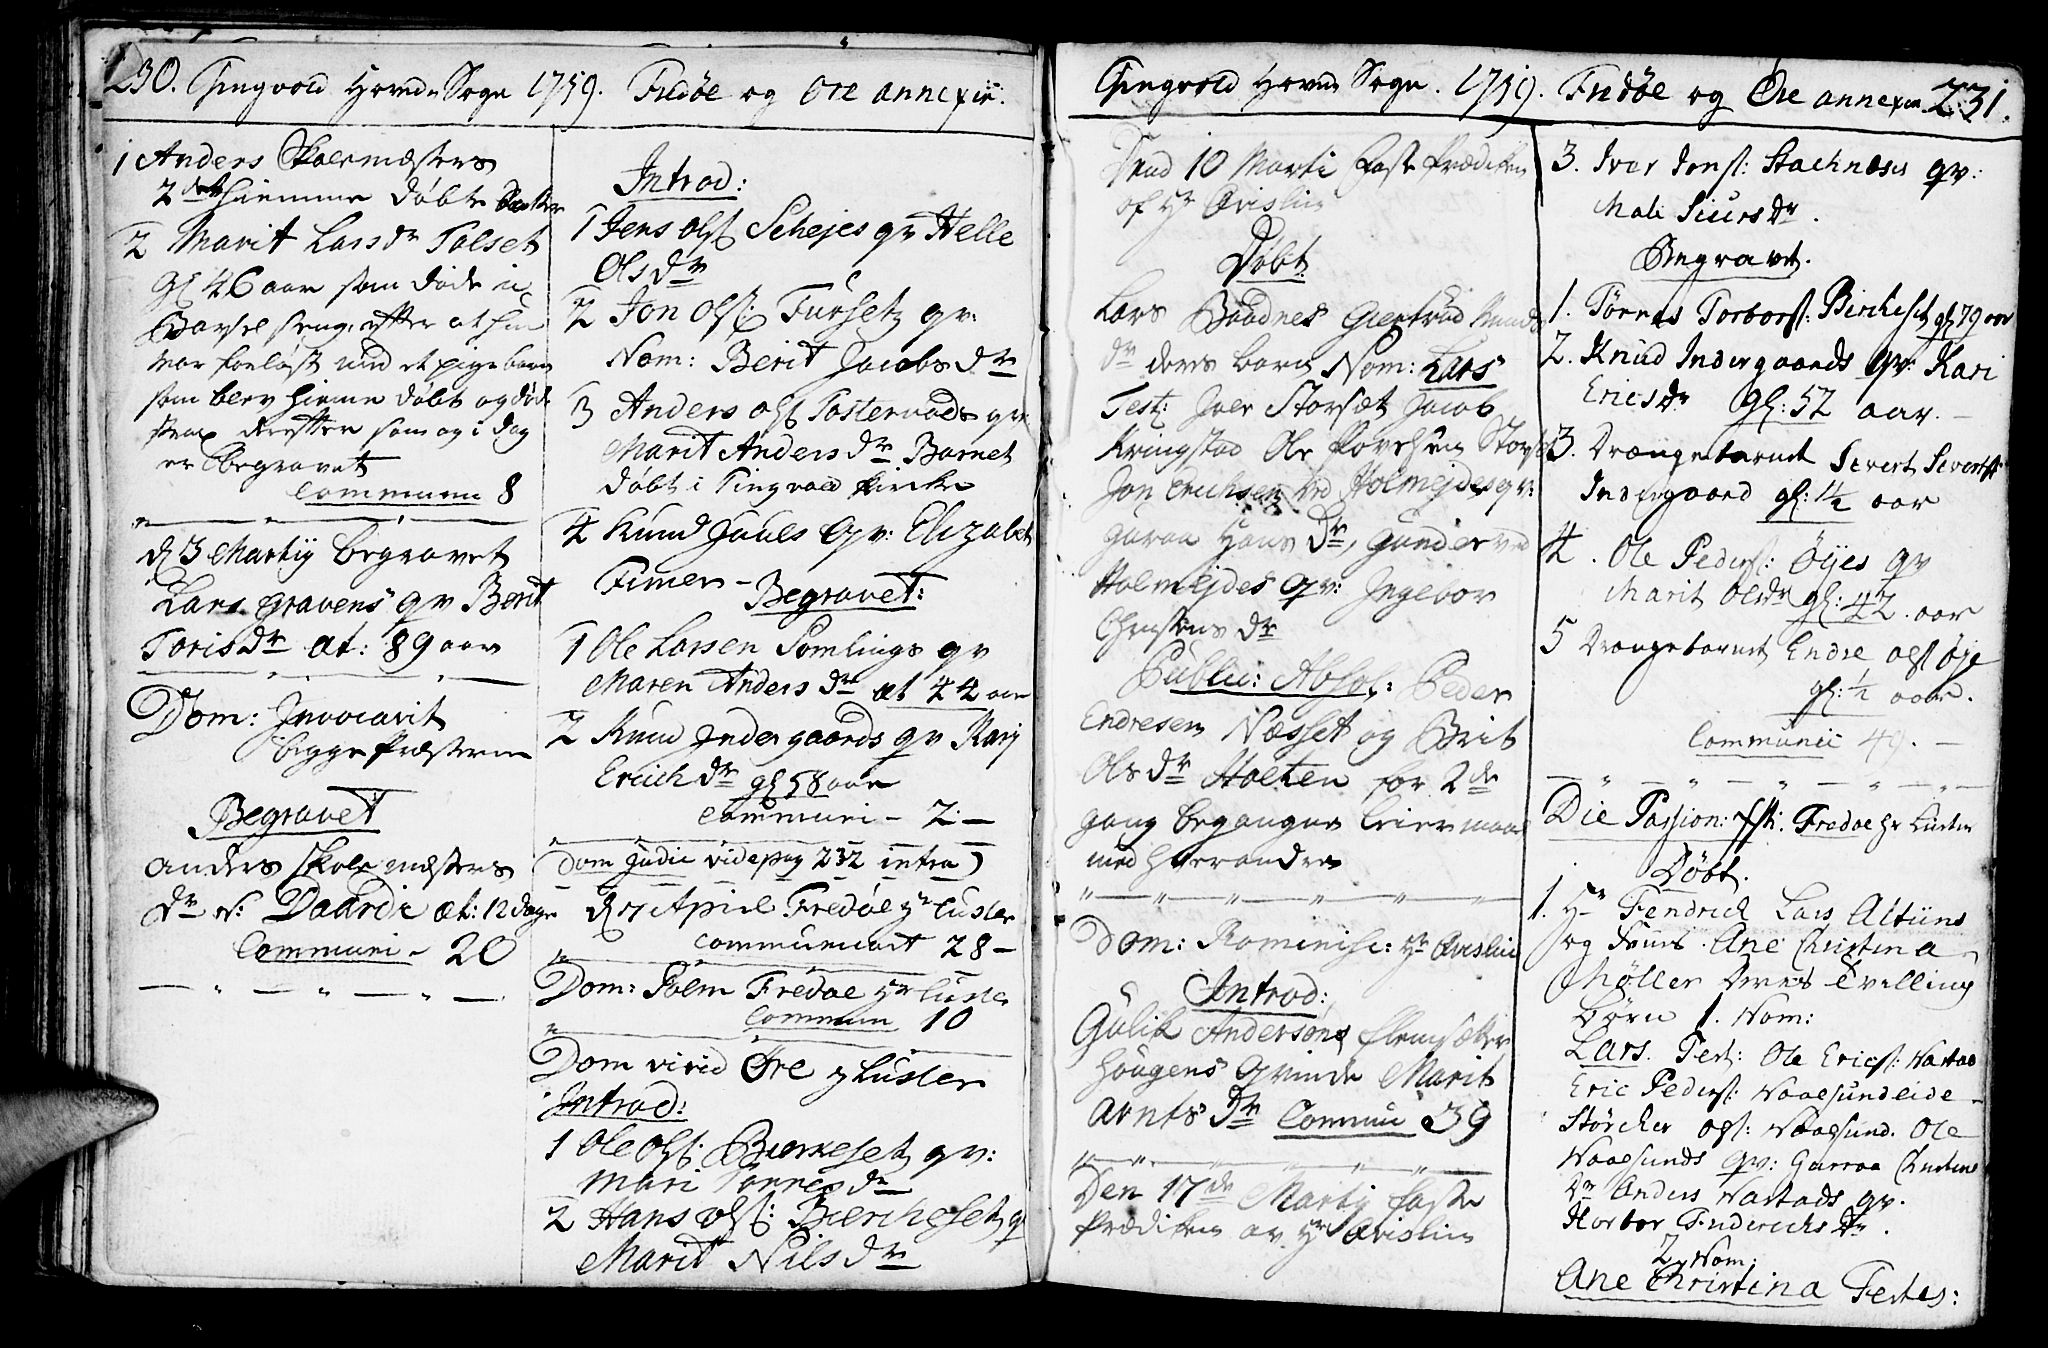 230. Tingvold Hoved Sogn 1759. Fredøe og Øre annexer.
1 Anders Skolemæsters
2de hiemme døbte
2 Marit Larsdr Talset
gl 46 aar som døde i
Barselseng efter at hun
var forløst med et pigebarn
som blev hieme døbt og døde
strax derefter som og i dag
er begravet
Communic 8
d 3 Martij begravet
Lars Gravens qv Berit
Torisdr æt: 89 aar
Dom: Invocavit
begge Præsterne
Begravet
Anders Skolemæsters
dr N: Daardi æt: 12 dage
Communi - 20
Introd:
1 Jens Ols: Schejes qv Helle
Olsdr
2 Jon Ols: Furset qv:
Nom: Berit Jacobsdr
3 Anders Ols: Tostervads qv
Marit Andersdr Barnet
døbt i Tingvold kirke
4 Knud Juuls qv: Elizabet
Fimer -
Begravet:
1 Ole Larsen Somlings qv
Maren Andersdr at 44 aar
2 Knud Indergaards qv Karj
Erichdr gl 58 aar
Communi - 2 -
Dom Judic vide pag 232 intra)
d 7 April Fredøe Hr Lusler
Communicant 28 -
Dom: Palm Fredøe Hr Lusler
Commun 10
Dom vivid Øre Hr Lusler
Introd:
1 Ole Ols: Bierkeset qv:
Mari Tørresdr
2 Hans Ols: Bierckeset qv
Marit Nilsdr
Tingvold Hoved Sogn. 1759. Fredøe og Øre annexer 231.
Den 10 Marti Faste Prædiken
af Hr
Døbt
Lars Baadnes Giertrud Knuds
dr deres barn Nom: Lars
Test: Joer Storset Jacob
Kringstad Ole Povelsen
Jon Erichsen ved Holmejdes qv:
Guroa Hansdr, Gunder ved
Holmejdes qv: Ingebor
Christensdr
Public: Absol: Peder
Endresen Næsset og Brit
Olsdr Holten for 2de
gang begangne Leiermaal
med hverandre
Dom: Reminisc: Hr
Introd:
Gulik Andersøns
Hougens qvinde Marit
Arntsdr Commu 39
Den 17de Martij faste
Prædiken av Hr
3. Iver Jonss: Stachnæses qv:
Mali Siursdr.
Begravet.
1. Tørres Torbors: Bircheset gl 79 aar
2. Knud Indergaards qv: Kari
Ericsdr gl: 52 aar. -
3. Drængebarnet Sivert Siverts
Indergaard gl: 1½ aar
4. Ole Peders: Øyes qv
Marit Olsdr gl: 42 aar
5 Drængebarnet Endre Ols Øye
gl: ½ aar.
Communic 49. -
Die Passion: Fredøe Hr Lusler
Døbt.
1. Hr Fendrick Lars Altuns
og Frues Ane Christina
Møller deres Tvilling
Børn 1. Nom:
Lars. Test: Ole Erics: Nastad
Eric Peders: Waagsundeide
Størcker Ols: Waagsund. Ole
Waagsunds qv: Guroa Christens
dr Anders Nastads qv.
Horbor Fridericksdr.
2. Nom:
Ane Christina Testes: